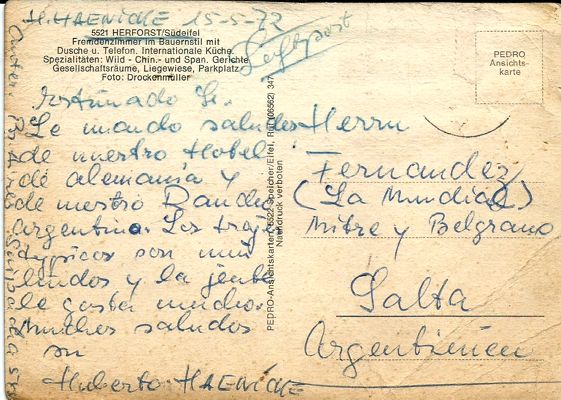 H. HAENICKE 15-5-72
Luftpost
5521 HERFORST/Südeifel
Fremdenzimmer im Bauernstil mit
Dusche u. Telefon. Internationale Küche.
Spezialitäten: Wild - Chin.- und Span. Gerichte
Gesellschaftsräume, Liegewiese, Parkplatz
Foto: Drockenmüller
PEDRO
Ansichts-
karte
Estimado Sr.
Le mando saludos
de nuestro Hotel
de alemania y
de nuestro Banda
argentina. Los traje
typicos son mui
lindos y la jente
le gusta mucho.
Muchos saludos
su
Huberto HAENICKE
PEDRO-Ansichtskarten, 5522 Speicher/Eifel, Ruf (06562) 347
Nachdruck verboten
Herrn
Fernandez
(La Mundial)
Mitre y Belgrano
Salta
Argentinien